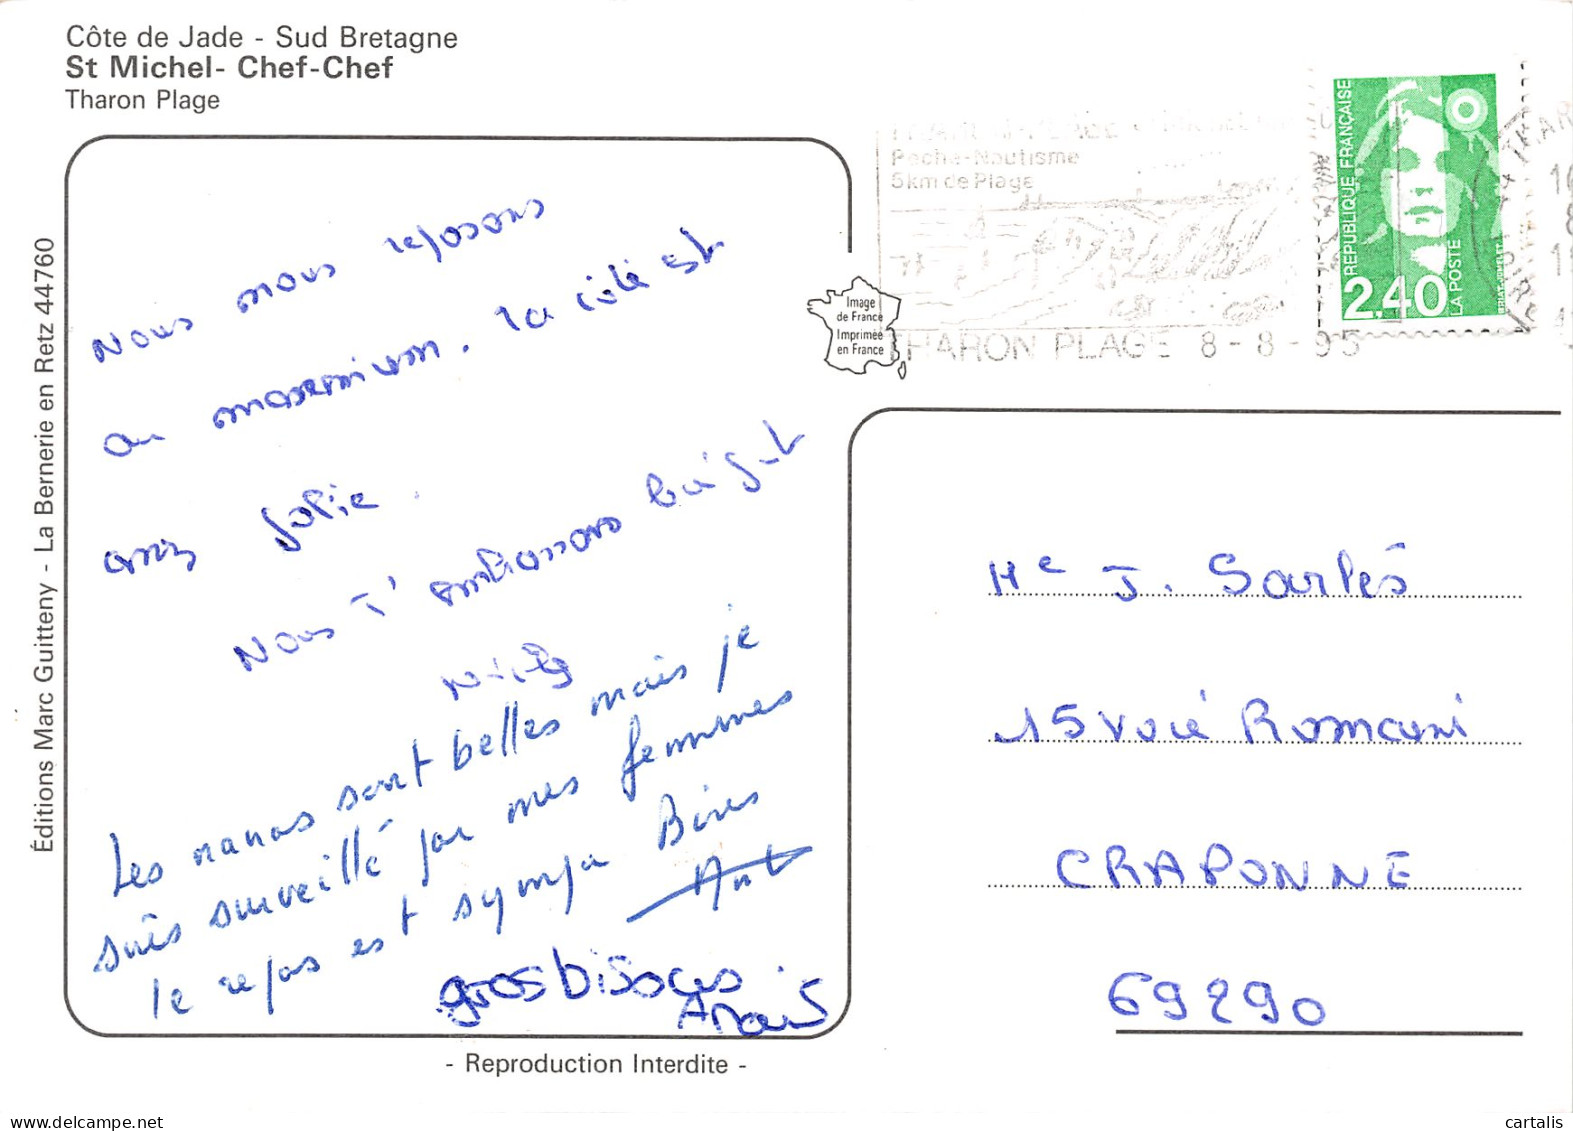 Côte de Jade - Sud Bretagne
St Michel- Chef-Chef
Tharon Plage
Éditions Marc Guitteny - La Bernerie en Retz 44760
Nous nous reposons
au maximum. la côte est
assez jolie.
Nous t'embrassons
Les nanas sont belles mais je
suis surveillé par mes femmes
le repas est sympa Bises
gros bisous
Anaïs
- Reproduction Interdite -
Image
de France
Imprimée
en France
Peche-Nautisme
5km de Plage
THARON PLAGE 8-8-95
REPUBLIQUE FRANÇAISE
2,40
LA POSTE
Me J. Sarles
15 voie Romaine
CRAPONNE
69290
cartalis